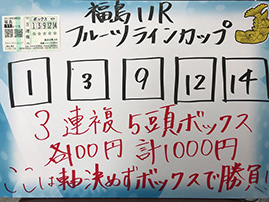 福島11R
フルーツラインカップ
1 3 9 12 14
3連複5頭ボックス
各100円 計1000円
ここは軸決めずボックスで勝負!